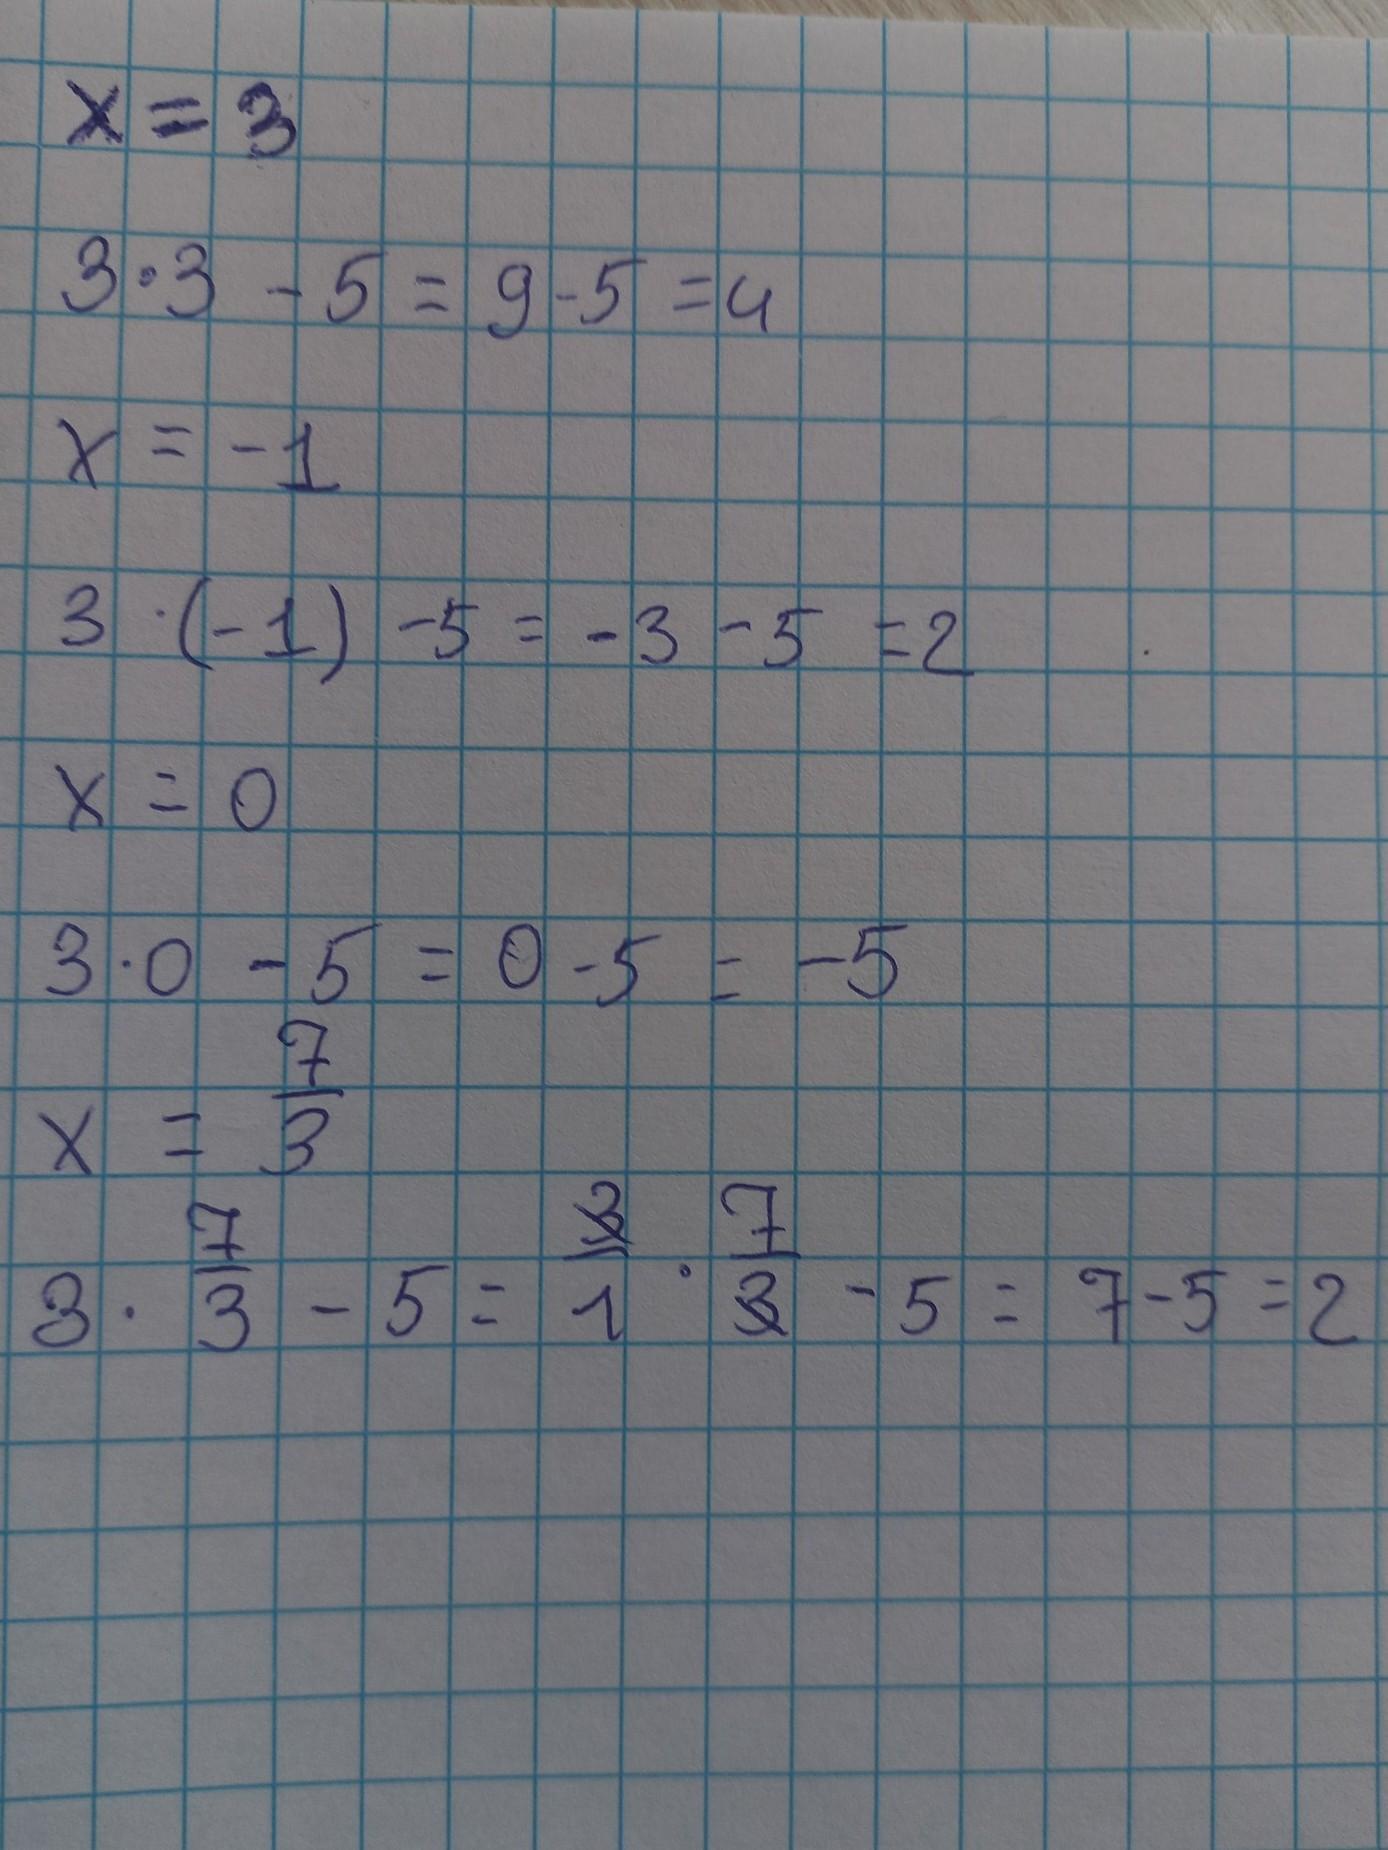 x = 3
3·3 - 5 = 9 - 5 = 4
x = -1
3 · (-1) - 5 = -3 - 5 = 2
x = 0
3·0 - 5 = 0 - 5 = -5
x = 7/3
3 · 7/3 - 5 = 3/1 · 7/3 - 5 = 7 - 5 = 2